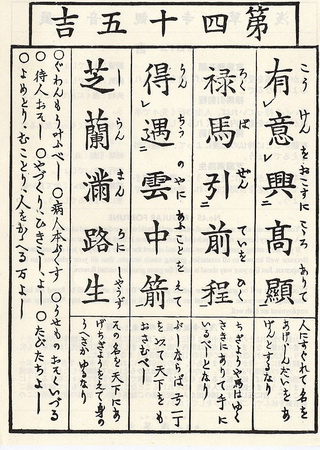 第四十五吉
有意興高顯
こうけんをおこすにこころありて
人にすぐれて名を
あげしんだいをあ
げんとするなり
禄馬引前程
ろくばせんていをひく
ちぎようや馬はゆく
さきにありて手に
いるべしとなり
得遇雲中箭
うんちうのやにあふことをえて
ぶしならば弓一丁
をいつて天下をも
おさむべし
芝蘭滿路生
しらんまんろにしやうず
其の名を天下にあ
げちぎようをえて身の
うへさかゆるなり
○ぐわんもうかなふべし ○病人本ぷくす ○うせものおそくいづる
○待人おそし ○やづくり、ひきこし、よし ○たびたちよし
○よめとり、むことり、人をかゝへる万よし